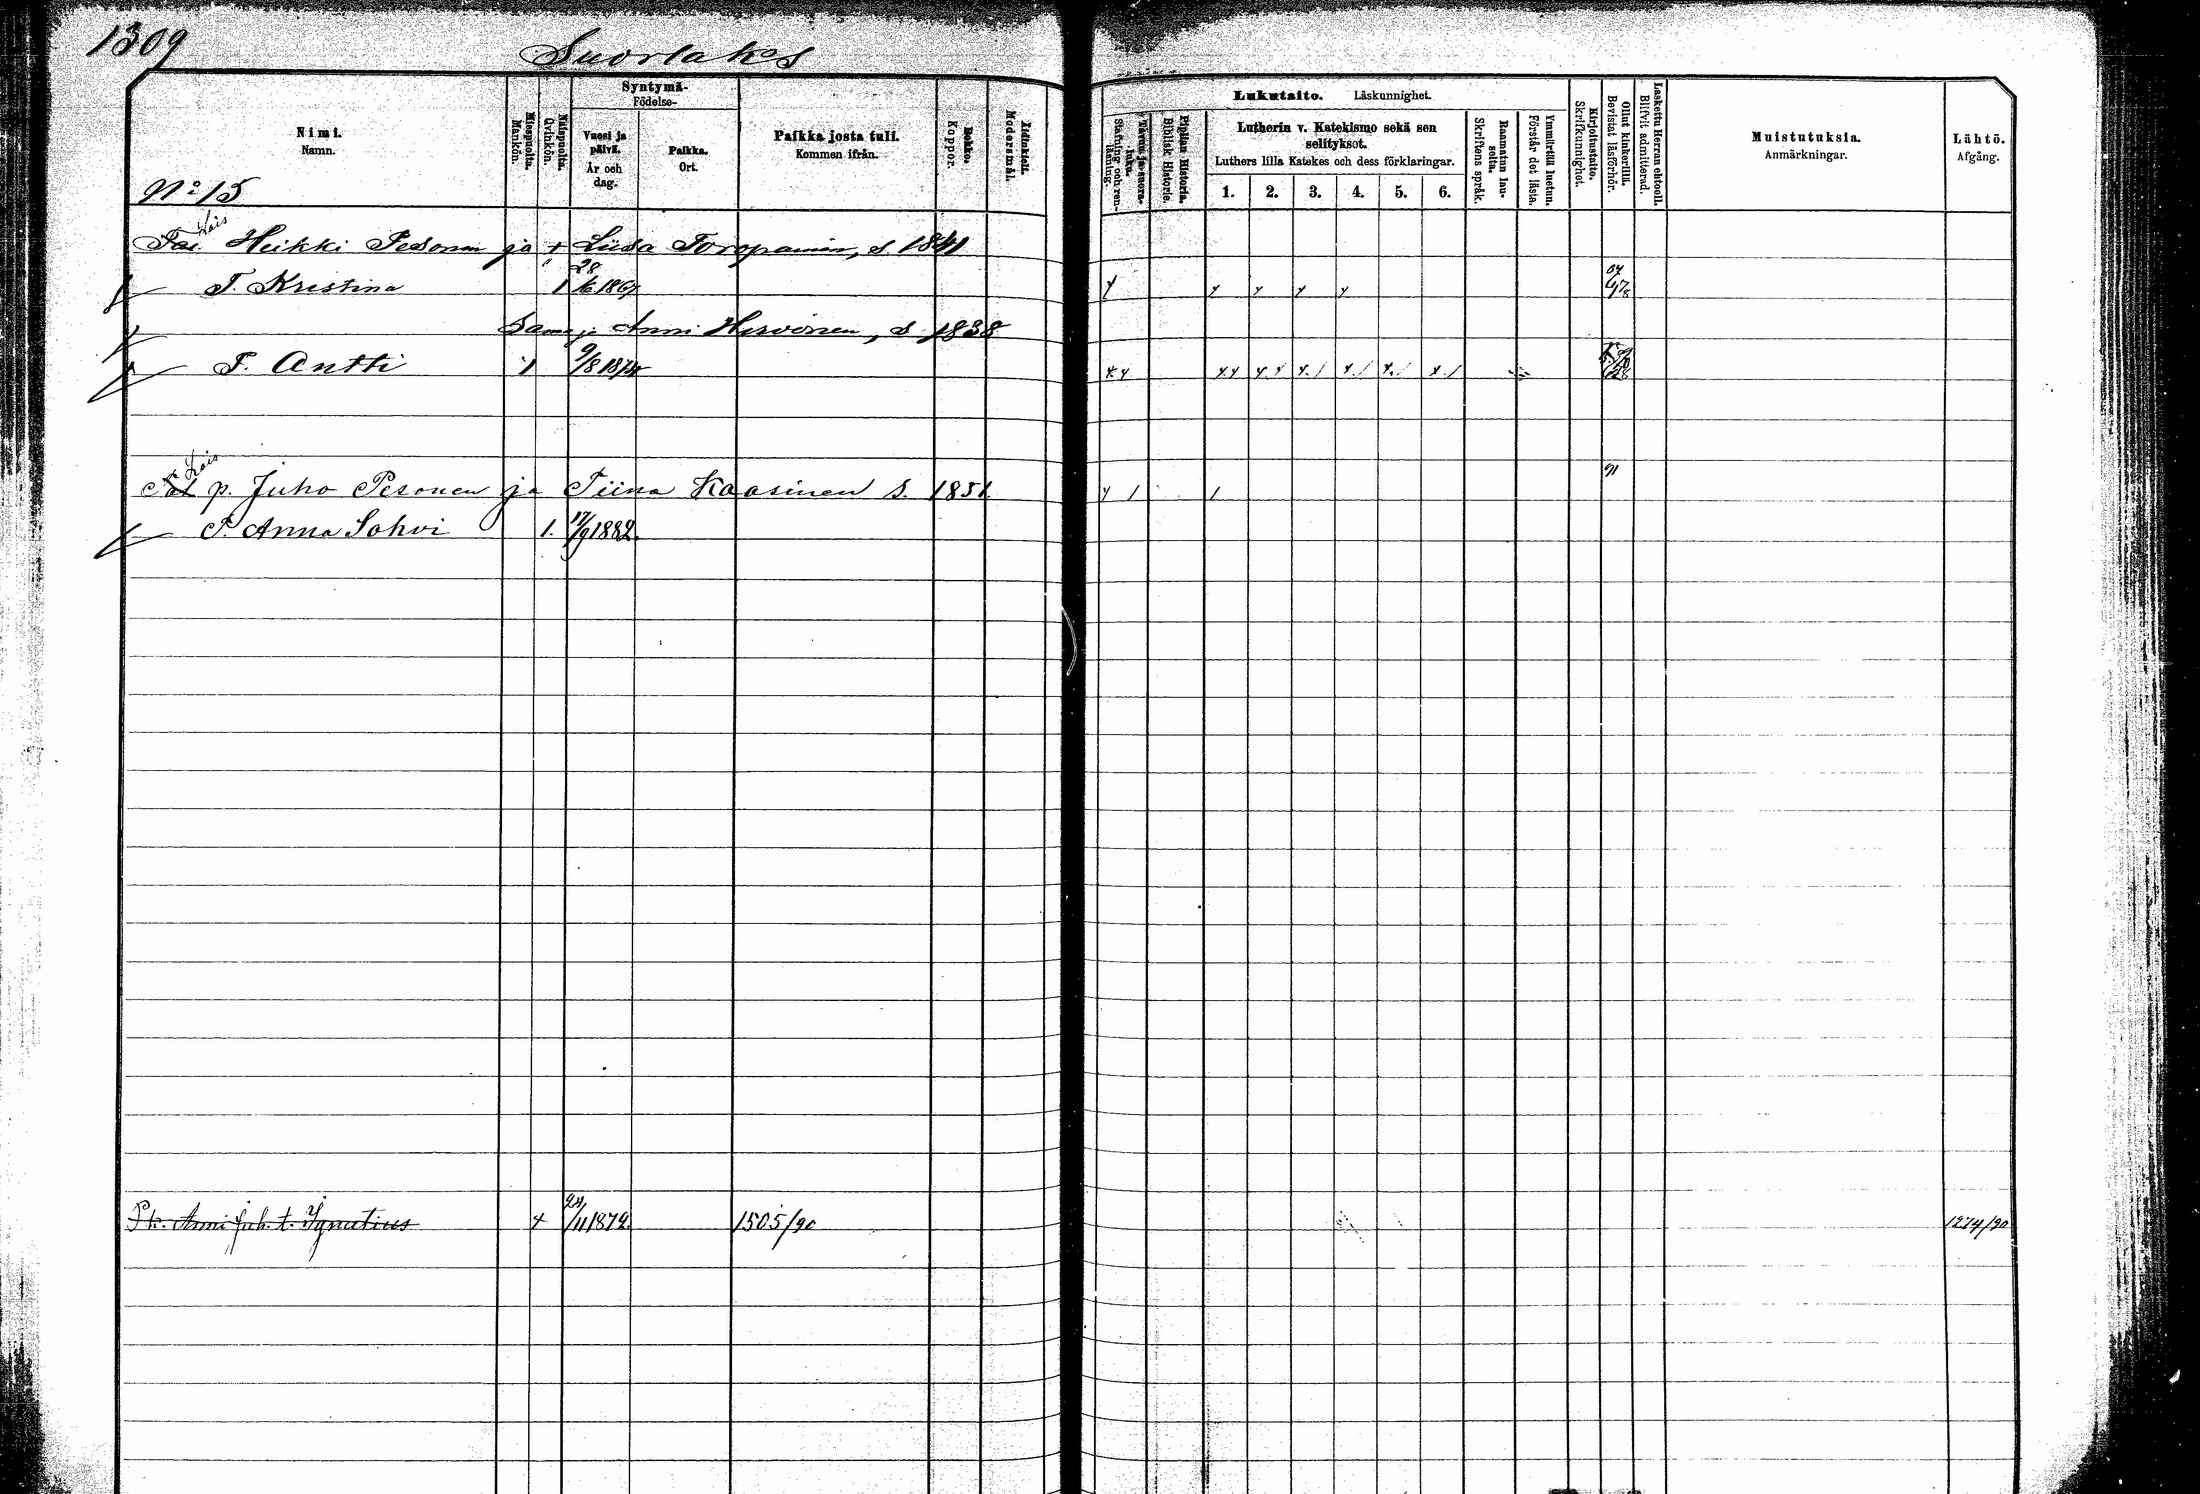 1309
Suorlaks
Nimi.
Namn.
Miespuolta.
Mankön.
Naispuolta.
Qvinkön.
Syntymä-
Födelse-
Vuosi ja päivä.
År och dag.
Paikka.
Ort.
Paikka josta tuli.
Kommen ifrån.
Rokko.
Koppor.
Äidinkieli.
Modersmål.
Lukutaito. Läskunnighet.
Tavuu ja suora-luku.
Stafning och ren-läsning.
Piplian Historia.
Biblisk Historie.
Lutherin v. Katekismo sekä sen selitykset.
Luthers lilla Katekes och dess förklaringar.
1. 2. 3. 4. 5. 6.
Raamatun lau-seita.
Skriftens språk.
Ymmärtää luetun.
Förstår det lästa.
Kirjoitustaito.
Skrifkunnighet.
Ollut kinkerillä.
Bevistat läsförhör.
Laskettu Herran ehtooll.
Blifvit admitterad.
Muistutuksia.
Anmärkningar.
Lähtö.
Afgång.
No 15
Lois
Heikki Pesonen ja + Liisa Toropainen, s. 1841
T. Kristina 1 28/6 1867
Sama ja Anni Hirvonen, s. 1838
P. Antti 1 9/8 1874
Lois
p. Juho Pesonen ja Tiina Kaasinen s. 1851. 91
T. Anna Sohvi 1. 17/9 1882.
Pk. Anni Juh. t. Ignatius + 24/11 1872 1505/90 1274/90